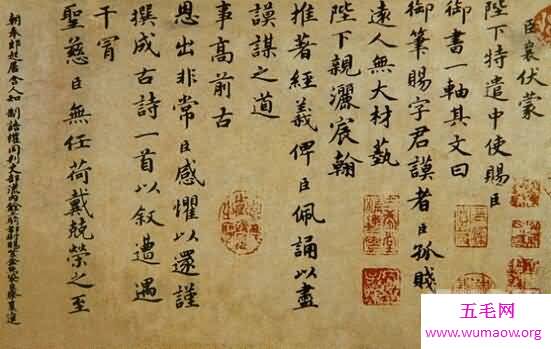 臣襄伏蒙
陛下特遣中使賜臣
御書一軸其文曰
御筆賜字君謨者臣孤賤
遠人無大材藝
陛下親灑宸翰
推著經義俾臣佩誦以盡
謨謀之道
事高前古
恩出非常臣感懼以還謹
撰成古詩一首以叙遭遇
干冒
聖慈臣無任荷戴兢榮之至
朝奉郎起居舍人知制誥權同判吏部流內銓
五毛网
www.wumaow.org